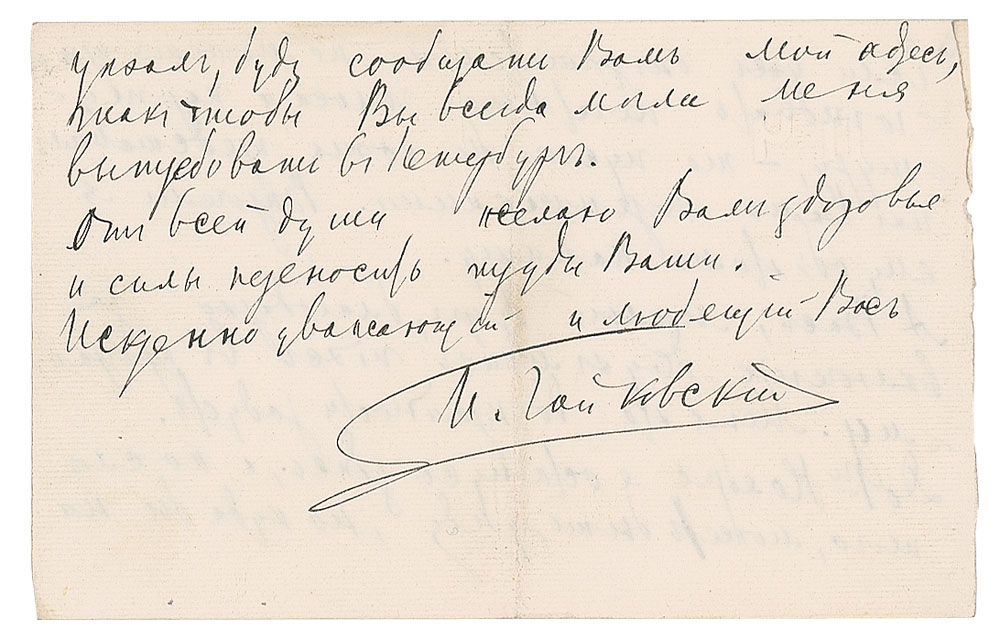 уѣхалъ, буду сообщати Вамъ мой адресъ,
такъ чтобы Вы всегда могли меня
вытребовати въ Петербургъ.
Отъ всей души желаю Вамъ здоровье
и силы переносить труды Ваши.
Искренно уважающій и любящій Васъ
П. Чайковскій